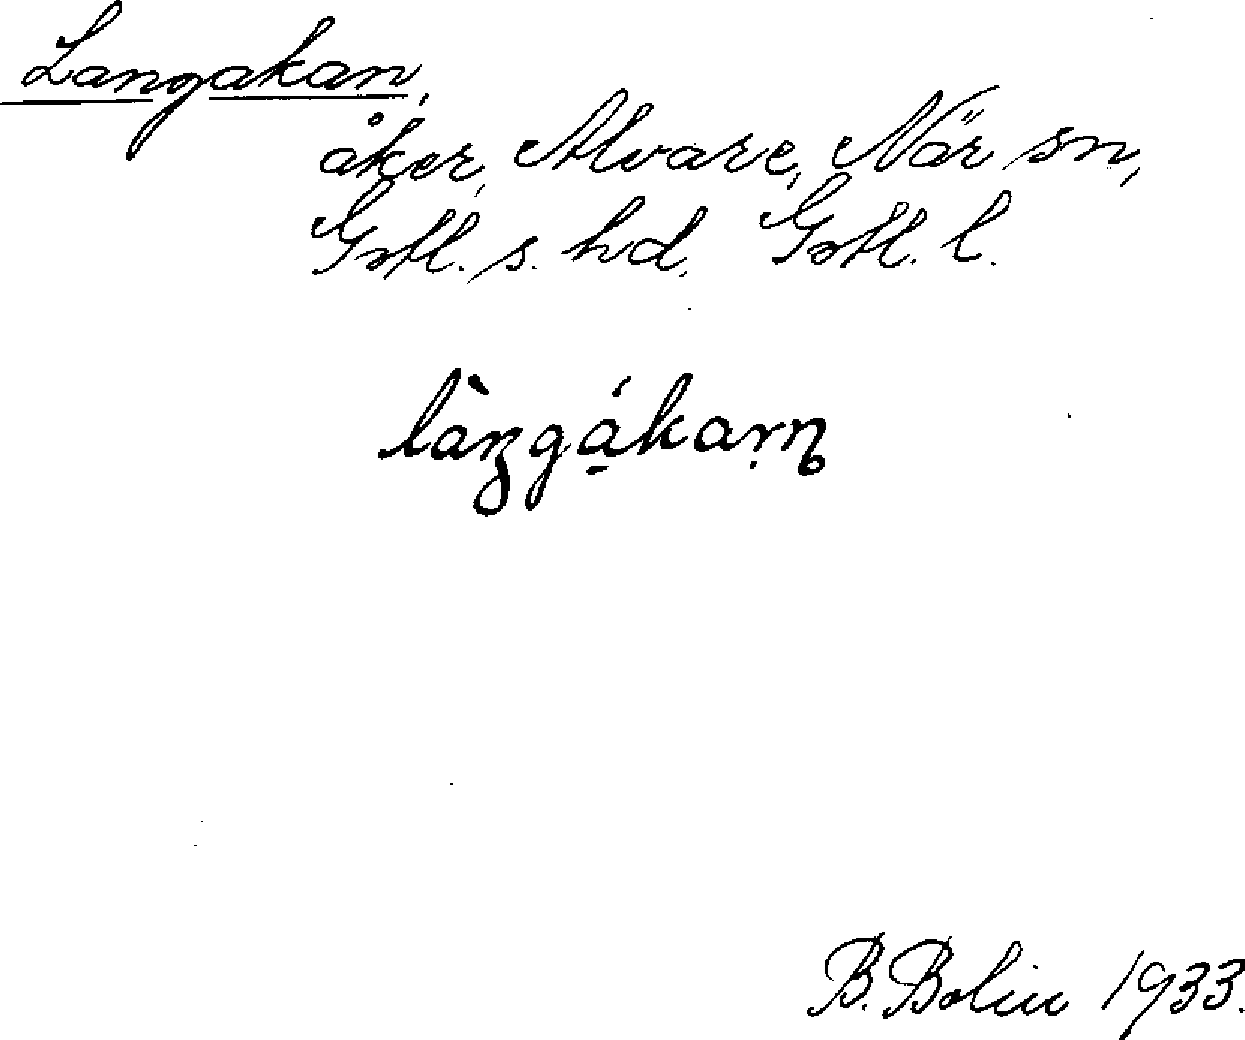 Langakan,
åker, Alvare, När sn,
Gotl. s. hd. Gotl. l.
làŋgá̱kaṛn̥
B. Bolin 1933.